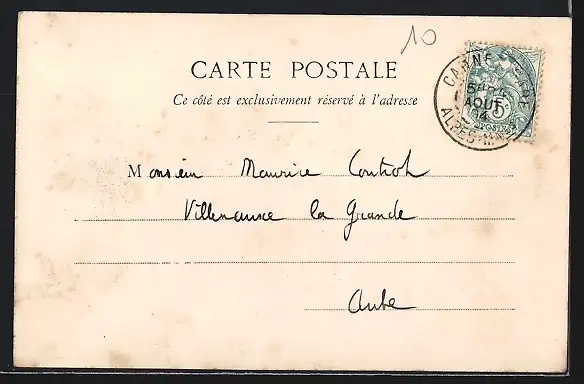 10
CARTE POSTALE
Ce côté est exclusivement réservé à l'adresse
5
AOUT
04
ALPES-MMES
POSTES
Monsieur Maurice
Villenauxe la Grande
Aube